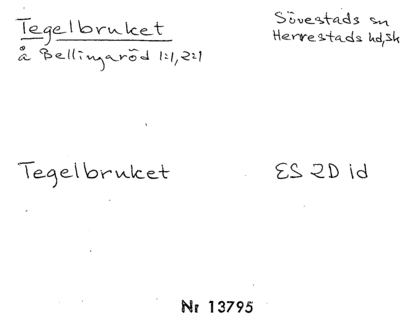 Tegelbruket
å Bellingaröd 1:1, 2:1
Sövestads sn
Herrestads hd, Sk
Tegelbruket
ES 2D id
Nr 13795